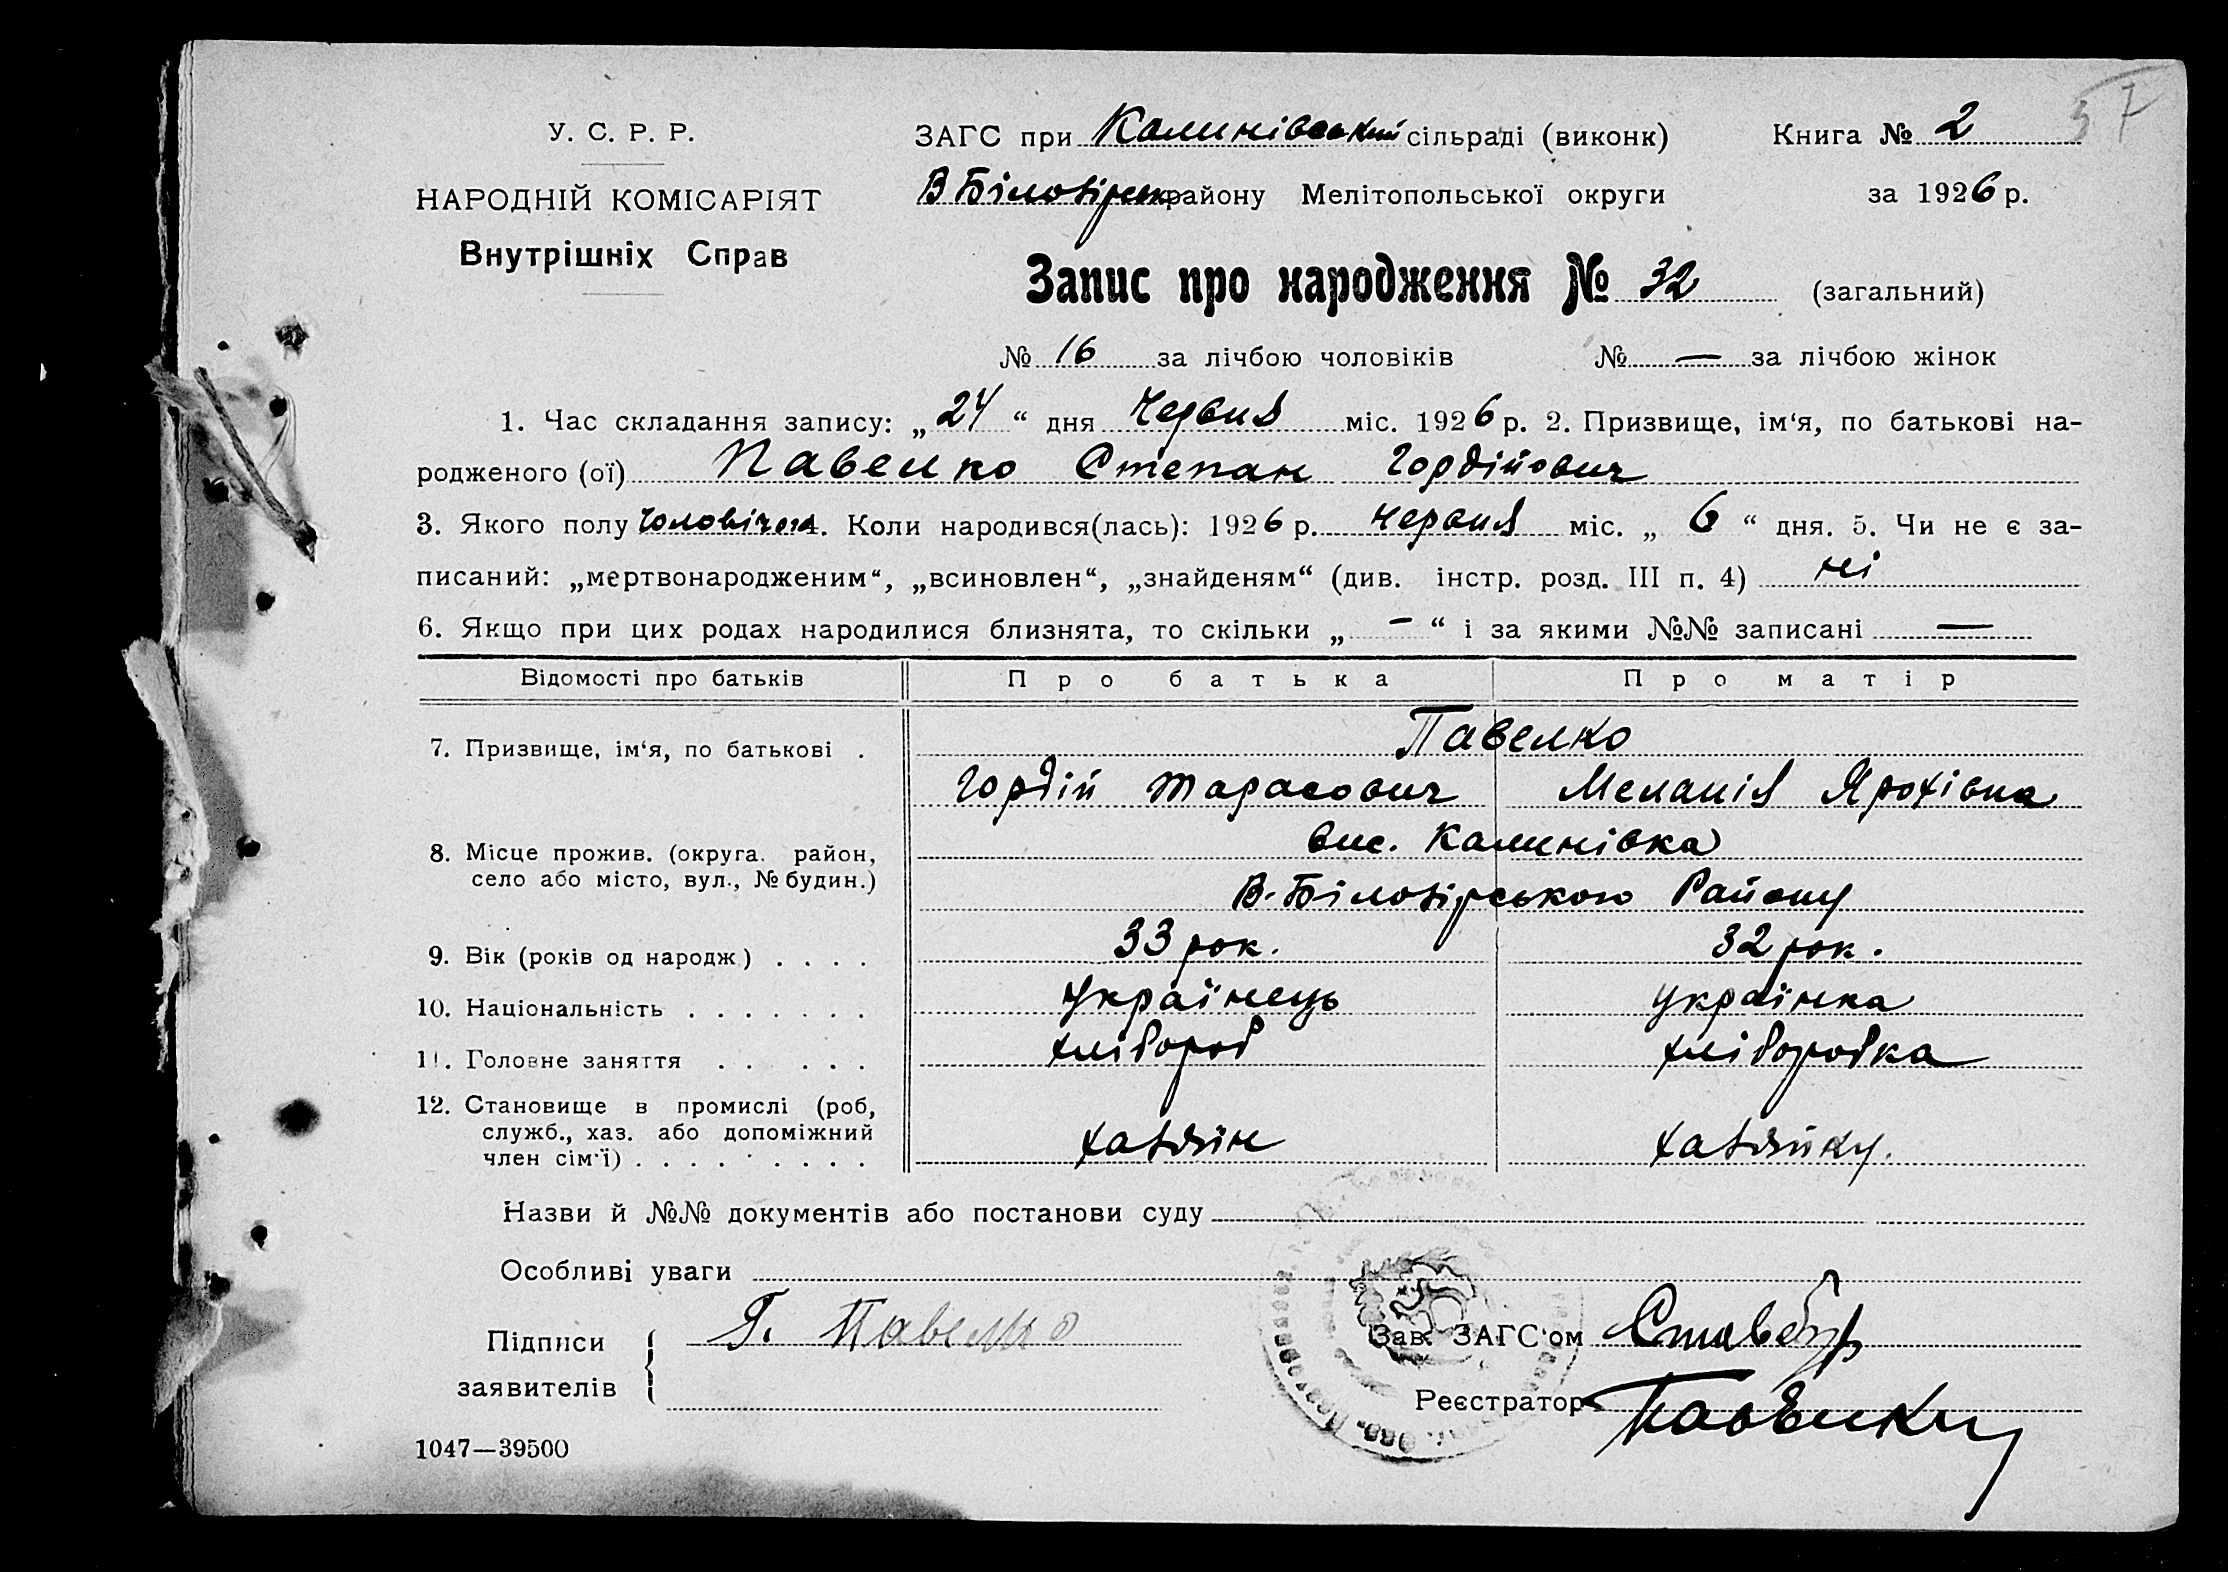 57
У. С. Р. Р.
НАРОДНІЙ КОМІСАРІЯТ
Внутрішніх Справ
ЗАГС при Калинівський сільраді (виконк) Книга № 2
В Білозірськ району Мелітопольської округи за 1926 р.
Запис про народження № 32 (загальний)
№ 16 за лічбою чоловіків № — за лічбою жінок
1. Час складання запису: „24“ дня Червня міс. 1926 р. 2. Призвище, ім‘я, по батькові на-
родженого (ої) Павелко Степан Гордійович
3. Якого полу чоловічого 4. Коли народився(лась): 1926 р. Червня міс. „6“ дня. 5. Чи не є за-
писаний: „мертвонародженим“, „всиновлен“, „знайденям“ (див. інстр. розд. III п. 4) ні
6. Якщо при цих родах народилися близнята, то скільки „—“ і за якими №№ записані —
Відомості про батьків Про батька Про матір
7. Призвище, ім‘я, по батькові . Павелко
Гордій Тарасович Меланія Ярохівна
8. Місце прожив. (округа. район, вис. Калинівка
село або місто, вул., № будин.) В-Білозірського Району
9. Вік (років од народж) . . . . 33 рок. 32 рок.
10. Національність . . . . . . . Українець Українка
11. Головне заняття . . . . . . хлібороб хліборобка
12. Становище в промислі (роб,
служб., хаз. або допоміжний
член сім‘ї) . . . . . . . . . хазяїн хазяйку.
Назви й №№ документів або постанови суду
Особливі уваги
Підписи
заявителів
Г. Павелко
Зав. ЗАГС‘ом
Реєстратор
1047—39500